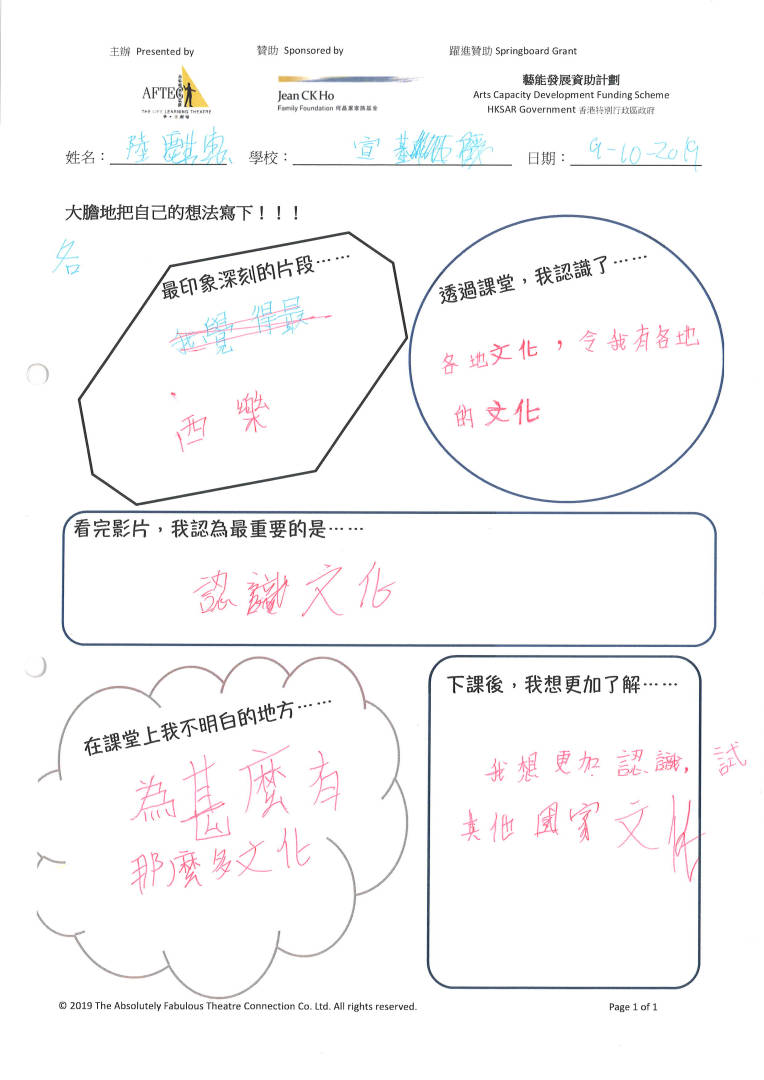 主辦 Presented by
贊助 Sponsored by
躍進贊助 Springboard Grant
AFTEC
THE LIFE LEARNING THEATRE
Jean CK Ho
Family Foundation 何晶潔家族基金
藝能發展資助計劃
Arts Capacity Development Funding Scheme
HKSAR Government 香港特別行政區政府
姓名： 陸 學校： 宣基 日期： 9-10-2019
大膽地把自己的想法寫下！！！
各
最印象深刻的片段⋯⋯
我覺得最
西樂
透過課堂，我認識了⋯⋯
各地文化，令我有各地
的文化
看完影片，我認為最重要的是⋯⋯
認識文化
在課堂上我不明白的地方⋯⋯
為甚麼有
那麼多文化
下課後，我想更加了解⋯⋯
我想更加認識，試
其他國家文化
© 2019 The Absolutely Fabulous Theatre Connection Co. Ltd. All rights reserved.
Page 1 of 1